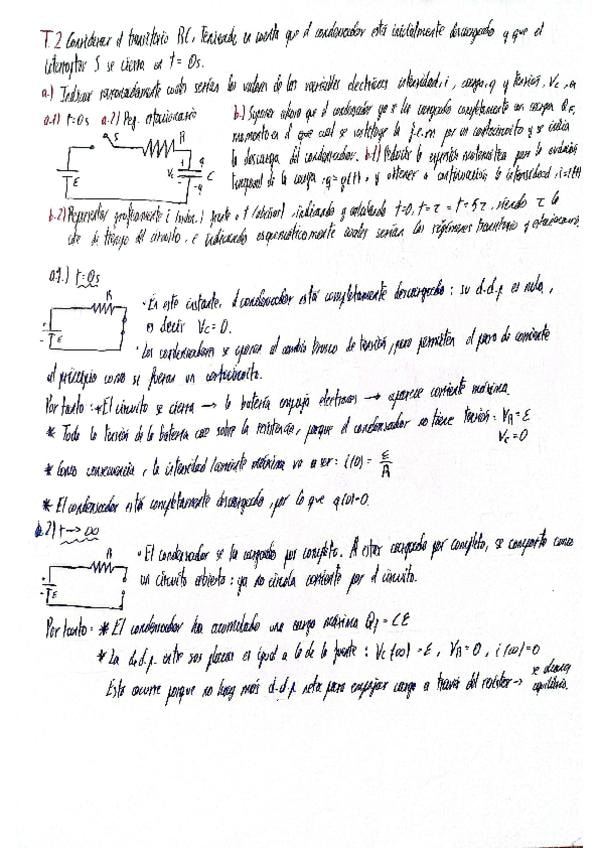 T.2 Considerar el transitorio RC. Teniendo en cuenta que el condensador está inicialmente descargado y que el
interruptor S se cierra en t = 0s.
a.) Indicar razonadamente cuales serían los valores de las variables electricas intensidad, i, carga, q y tensión, Vc, en
a.1) t=0s a.2) Reg. estacionario
b.) Suponer ahora que el condensador ya se ha cargado completamente con carga Qf,
momento en el que cual se sustituye la f.e.m por un cortocircuito y se inicia
la descarga del condensador. b.1) Deducir la expresión matemática para la evolución
temporal de la carga q=q(t), y obtener a continuación la intensidad, i=i(t)
S
R
E
Vc
+ q
- q
C
b.2) Representar graficamente i frente a t, indicando y calculando t=0, t=τ = t=5τ, siendo τ la
cte de tiempo del circuito, e indicando esquemáticamente cuales serían los régimenes transitorio y estacionario.
a.1.) t=0s
R
E
· En este instante, el condensador está completamente descargado: su d.d.p es nula,
es decir Vc=0.
· Los condensadores se oponen al cambio brusco de tensión, pero permiten el paso de corriente
al principio como si fueran un cortocircuito.
Por tanto: * El circuito se cierra → la batería empuja electrones → aparece corriente máxima.
* Toda la tensión de la batería cae sobre la resistencia, porque el condensador no tiene tensión: VR=E
Vc=0
* Como consecuencia, la intensidad/corriente máxima va a ser: i(0) = E/R
* El condensador está completamente descargado, por lo que q(0)=0.
a.2) t→∞
R
E
· El condensador se ha cargado por completo. Al estar cargado por completo, se comporta como
un circuito abierto: ya no circula corriente por el circuito.
Por tanto: * El condensador ha acumulado una carga máxima Qf = CE
* La d.d.p. entre sus placas es igual a la de la fuente: Vc(∞) = E, VR=0, i(∞)=0
Esto ocurre porque no hay más d.d.p neta para empujar carga a través del resistor → se alcanza
equilibrio.